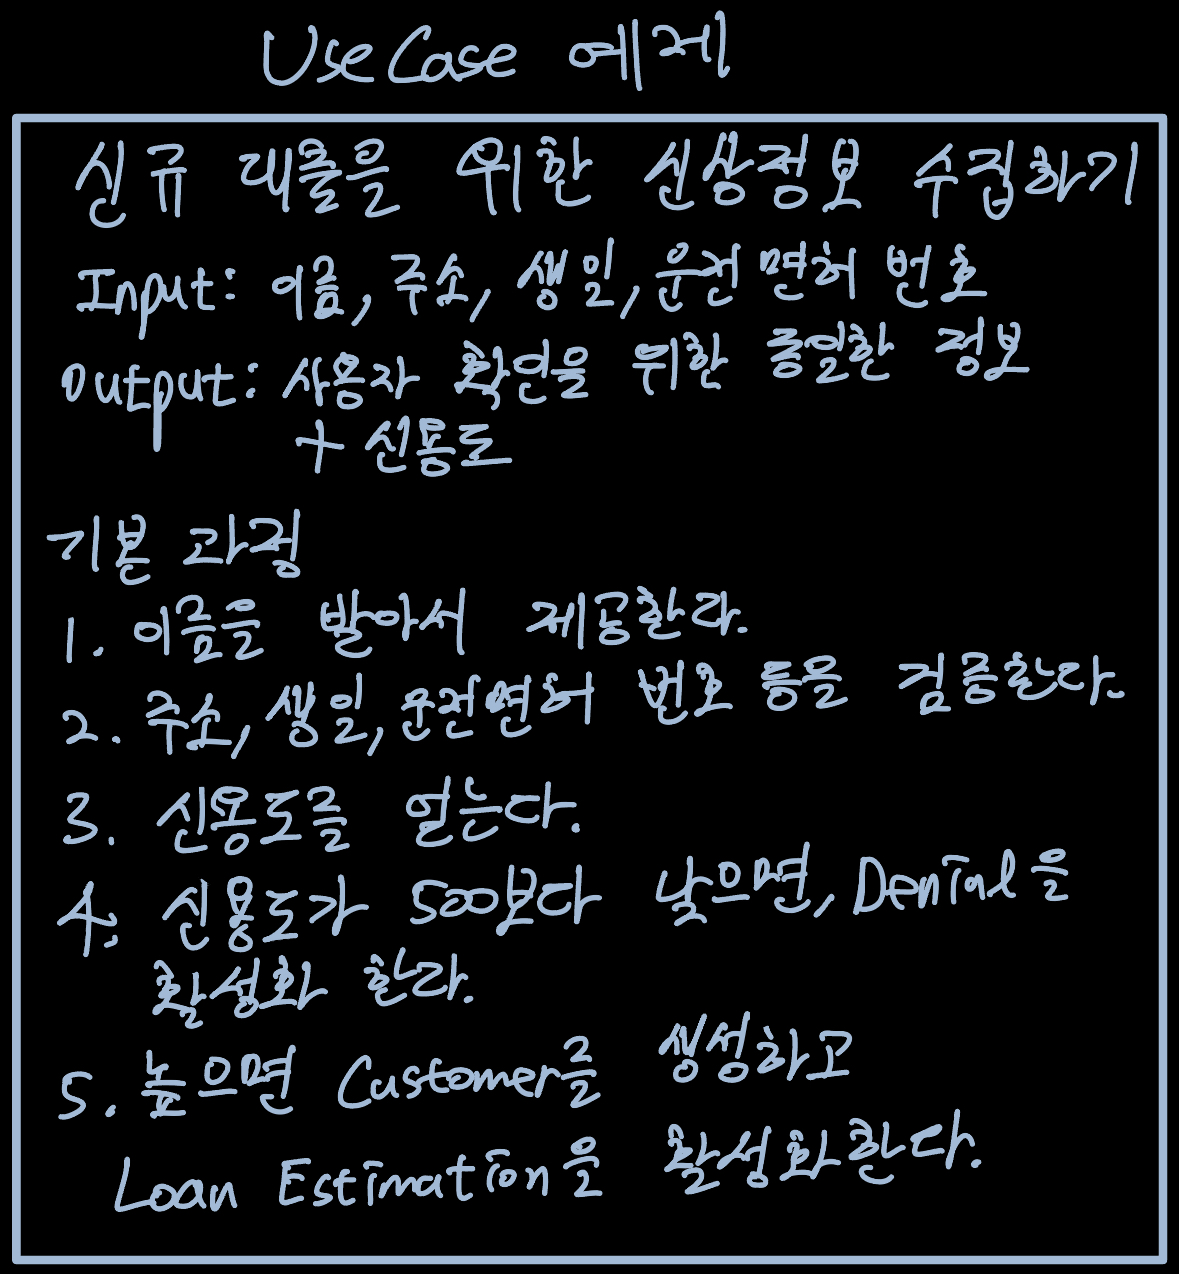 UseCase 예제
신규 대출을 위한 신상정보 수집하기
Input: 이름, 주소, 생일, 운전면허 번호
Output: 사용자 확인을 위한 동일한 정보
+ 신용도
기본 과정
1. 이름을 받아서 제공한다.
2. 주소, 생일, 운전면허 번호 등을 검증한다.
3. 신용도를 얻는다.
4. 신용도가 500보다 낮으면, Denial을
활성화 한다.
5. 높으면 Customer를 생성하고
Loan Estimation을 활성화한다.